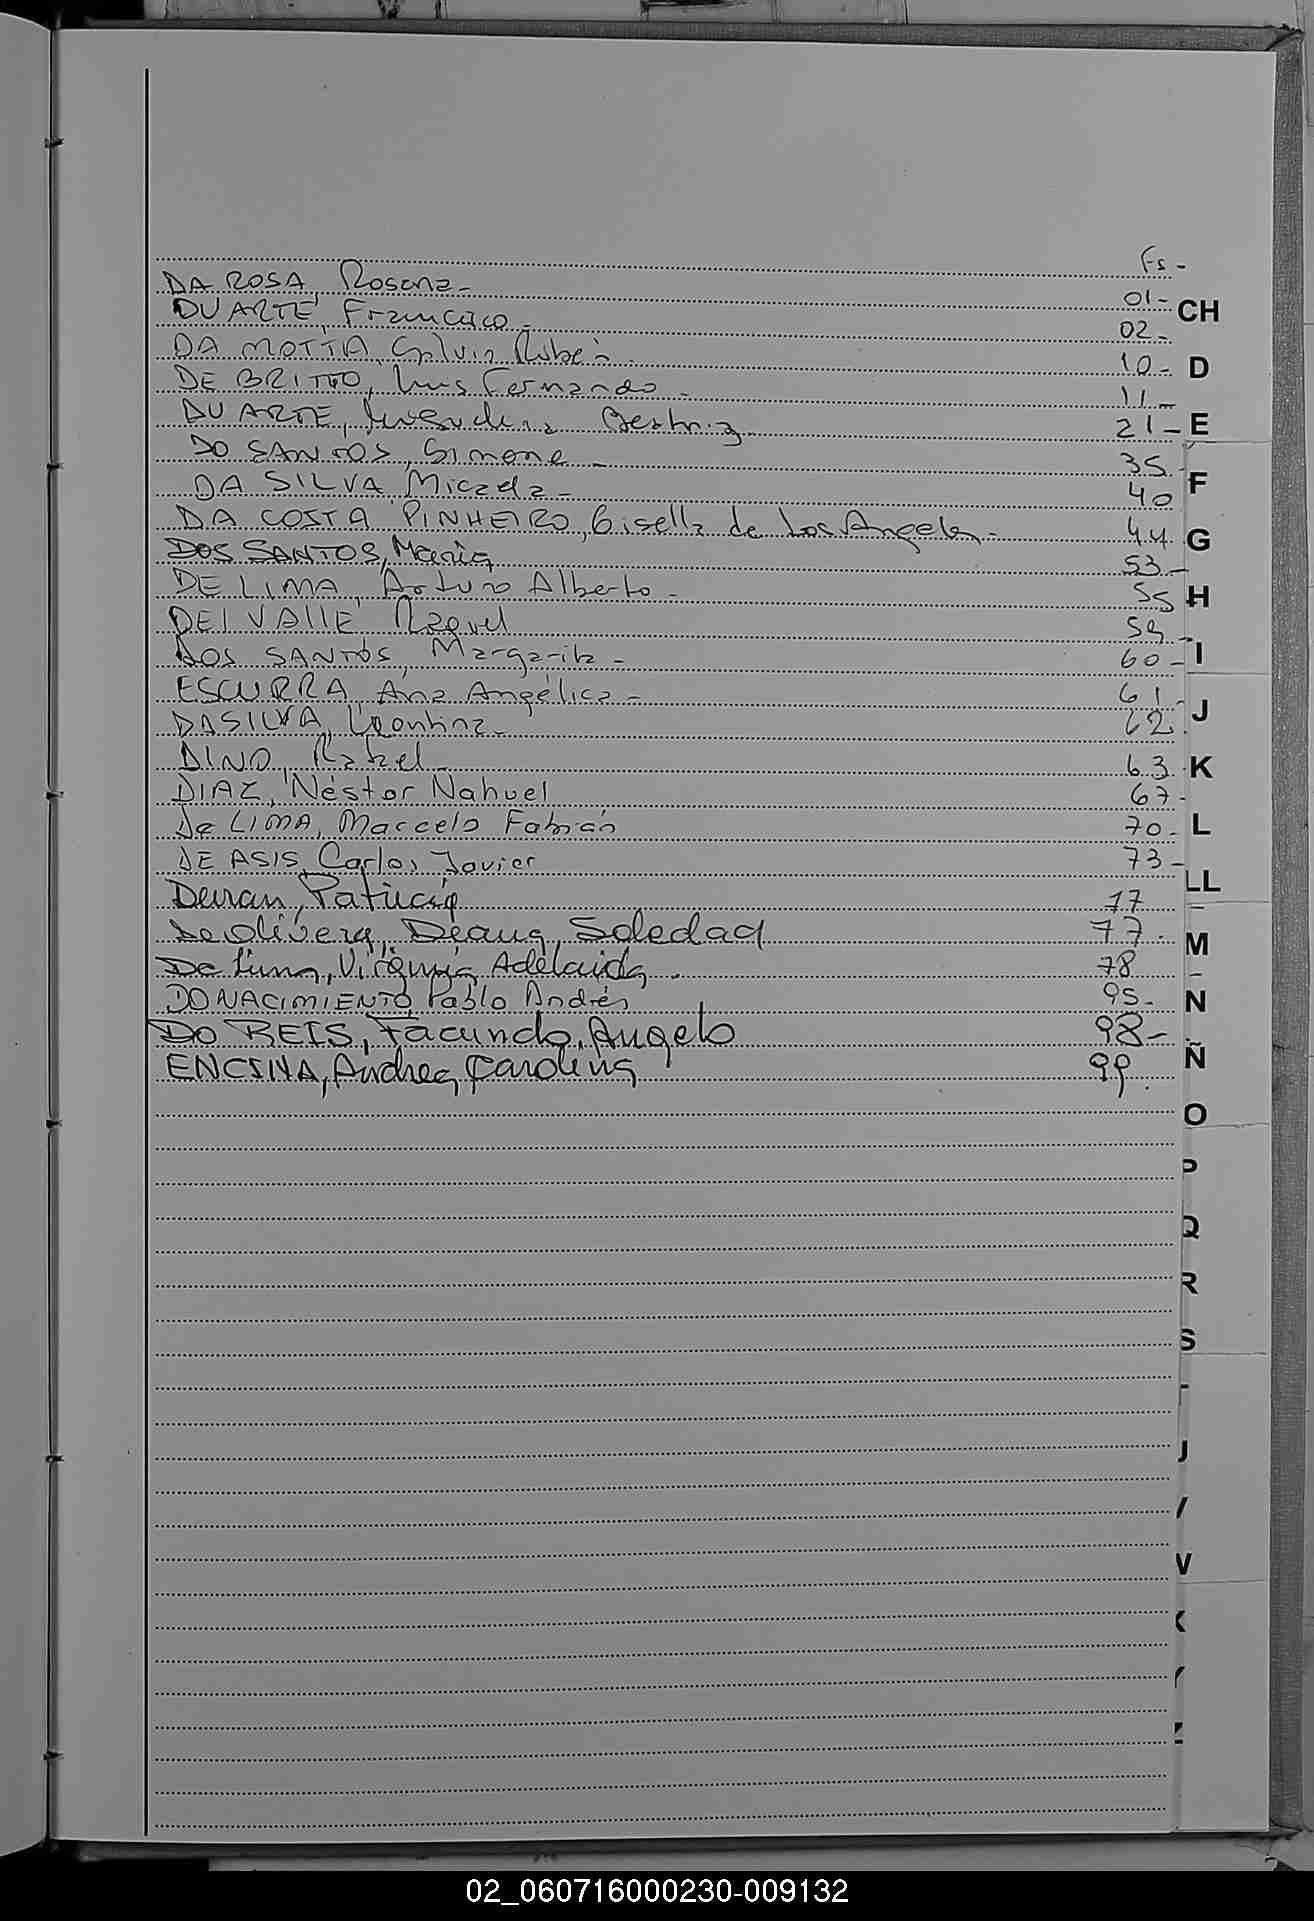 Fs-
DA ROSA, Rosana- 01-
DUARTE, Francisco- 02-
DA MOTTA, Silvio Rubén. 10-
DE BRITTO, Luis Fernando- 11-
DUARTE, Beatriz 21-
DO SANTOS, Simone- 35-
DA SILVA, Micaela- 40
DA COSTA PINHEIRO, Gisella de Los Angeles- 44.
DOS SANTOS, María 53-
DE LIMA, Arturo Alberto- 55
DEl VAllE Raquel 59-
DOS SANTOS, Margarita- 60-
ESCURRA, Ana Angélica- 61-
DA SILVA, Leontina- 62.
DINO, Rafael- 63.
DIAZ, Néstor Nahuel 67-
De LIMA, Marcelo Fabián 70-
DE ASIS, Carlos Javier 73-
Duran, Patricia 77
De Olivera, Deana, Soledad 77.
De Lima, Virginia Adelaida. 78
DO NACIMIENTO, Pablo Andrés 95-
DO REIS, Facundo, Angelo 98-
ENCINA, Andrea Carolina 99.
CH
D
E
F
G
H
I
J
K
L
LL
M
N
Ñ
O
P
Q
R
S
T
U
V
W
X
Y
Z
02_060716000230-009132